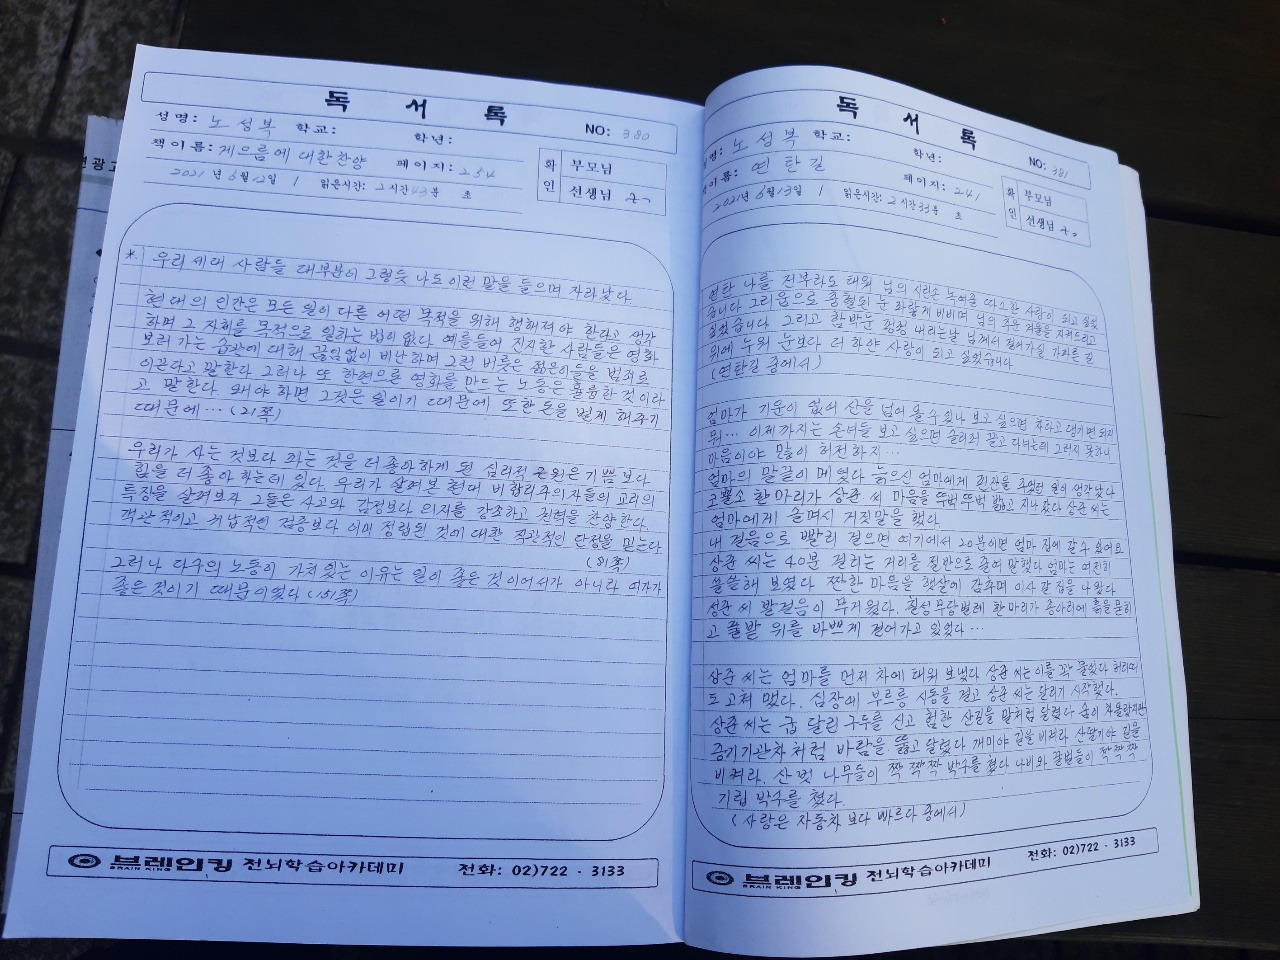 독 서 록
NO: 380
성명: 노성북 학교: 학년:
책이름: 게으름에 대한 찬양 페이지: 254
2021년 6월 12일 / 읽은시간: 2시간 43분 초
확인
부모님
선생님
*. 우리 세대 사람들 대부분이 그렇듯 나도 이런 말을 들으며 자라났다.
현대의 인간은 모든 일이 다른 어떤 목적을 위해 행해져야 한다고 생각
하며 그 자체를 목적으로 일하는 법이 없다. 예를들어 진지한 사람들은 영화
보러 가는 습관에 대해 끊임없이 비난하며 그런 버릇은 젊은이들을 범죄로
이끈다고 말한다 그러나 또 한편으론 영화를 만드는 노동은 훌륭한 것이라
고 말한다. 왜냐 하면 그것은 일이기 때문에 또한 돈을 벌게 해주기
때문에… (21쪽)
우리가 사는 것보다 파는 것을 더 좋아하게 된 심리적 근원은 기쁨보다
힘을 더 좋아 하는데 있다. 우리가 살펴본 현대 비합리주의자들의 교리의
특징을 살펴보자 그들은 사고와 감정보다 의지를 강조하고 권력을 찬양한다.
객관적이고 귀납적인 검증보다 이미 정립된 것에 대한 직관적인 단정을 믿는다
(81쪽)
그러나 다수의 노동이 가치있는 이유는 일이 좋은 것이어서가 아니라 여가가
좋은 것이기 때문이었다 (151쪽)
브레인킹 전뇌학습아카데미 전화: 02)722 - 3133
BRAIN KING
독 서 록
NO: 381
성명: 노성북 학교: 학년:
책이름: 연탄길 페이지: 241
2021년 6월 13일 / 읽은시간: 2시간 33분 초
확인
부모님
선생님
연탄 나를 전부라도 태워 님의 시린손 녹여줄 따스한 사랑이 되고 싶었
습니다 그리움으로 충혈된 눈 파랗게 비비며 님의 추운 겨울을 지켜드리고
싶었습니다 그리고 함박눈 펑펑 내리는날 님께서 걸어가실 가파른 길
위에 누워 눈보다 더 하얀 사랑이 되고 싶었습니다
(연탄길 중에서)
엄마가 기운이 없어 산을 넘어 올 수 있나 보고 싶으면 차타고 댕기면 되지
뭐… 이제까지는 손녀들 보고 싶으면 슬리퍼 끌고 다녔는데 그러지 못하니
마음이야 많이 허전하지…
엄마의 말끝이 메였다 늙으신 엄마에게 핀잔을 주었던 일이 생각났다
코뿔소 한마리가 상준 씨 마음을 뚜벅뚜벅 밟고 지나갔다 상준 씨는
엄마에게 슬며시 거짓말을 했다.
내 걸음으로 빨리 걸으면 여기에서 20분이면 엄마 집에 갈 수 있어요
상준 씨는 40분 걸리는 거리를 절반으로 줄여 말했다 엄마는 여전히
쓸쓸해 보였다 짠한 마음을 햇살에 감추며 이사 갈 집을 나왔다
상준 씨 발걸음이 무거웠다. 칠성무당벌레 한마리가 종아리에 흙을 묻히
고 풀밭 위를 바쁘게 걸어가고 있었다…
상준 씨는 엄마를 먼저 차에 태워 보냈다 상준 씨는 이를 꽉 물었다 허리띠
도 고쳐 맸다. 심장에 부르릉 시동을 걸고 상준 씨는 달리기 시작했다.
상준 씨는 굽 달린 구두를 신고 험한 산길을 말처럼 달렸다 숨이 차올랐지만
증기기관차처럼 바람을 뚫고 달렸다 개미야 길을 비켜라 산딸기야 길을
비켜라. 산벚 나무들이 짝 짝 짝 박수를 쳤다 나비와 꿀벌들이 짝 짝 짝
기립 박수를 쳤다.
(사랑은 자동차 보다 빠르다 중에서)
브레인킹 전뇌학습아카데미 전화: 02)722 - 3133
BRAIN KING